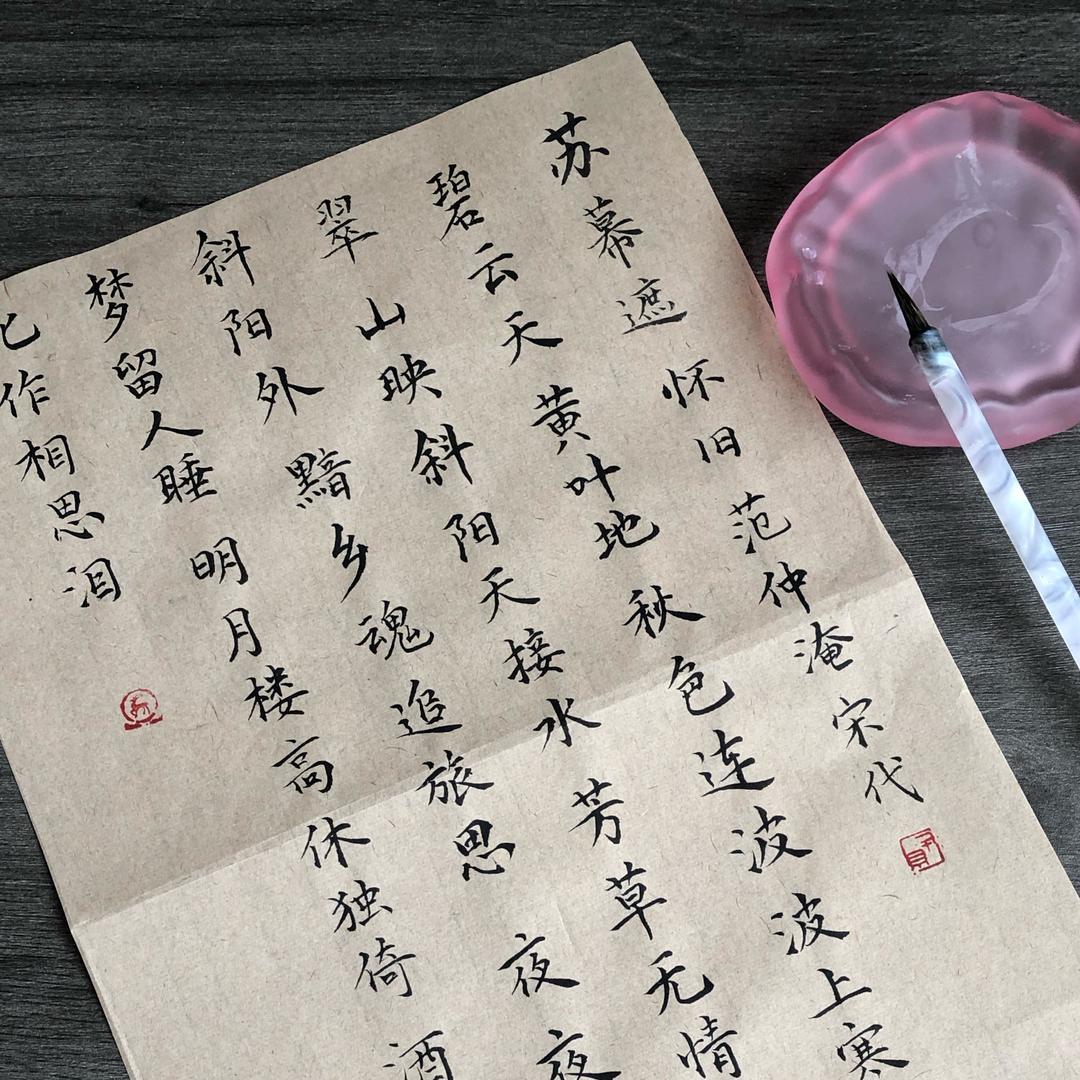 苏幕遮 怀旧 范仲淹 宋代
碧云天 黄叶地 秋色连波 波上寒
翠 山映斜阳天接水 芳草无情
斜阳外 黯乡魂 追旅思 夜夜
梦留人睡 明月楼高休独倚 酒
作相思泪